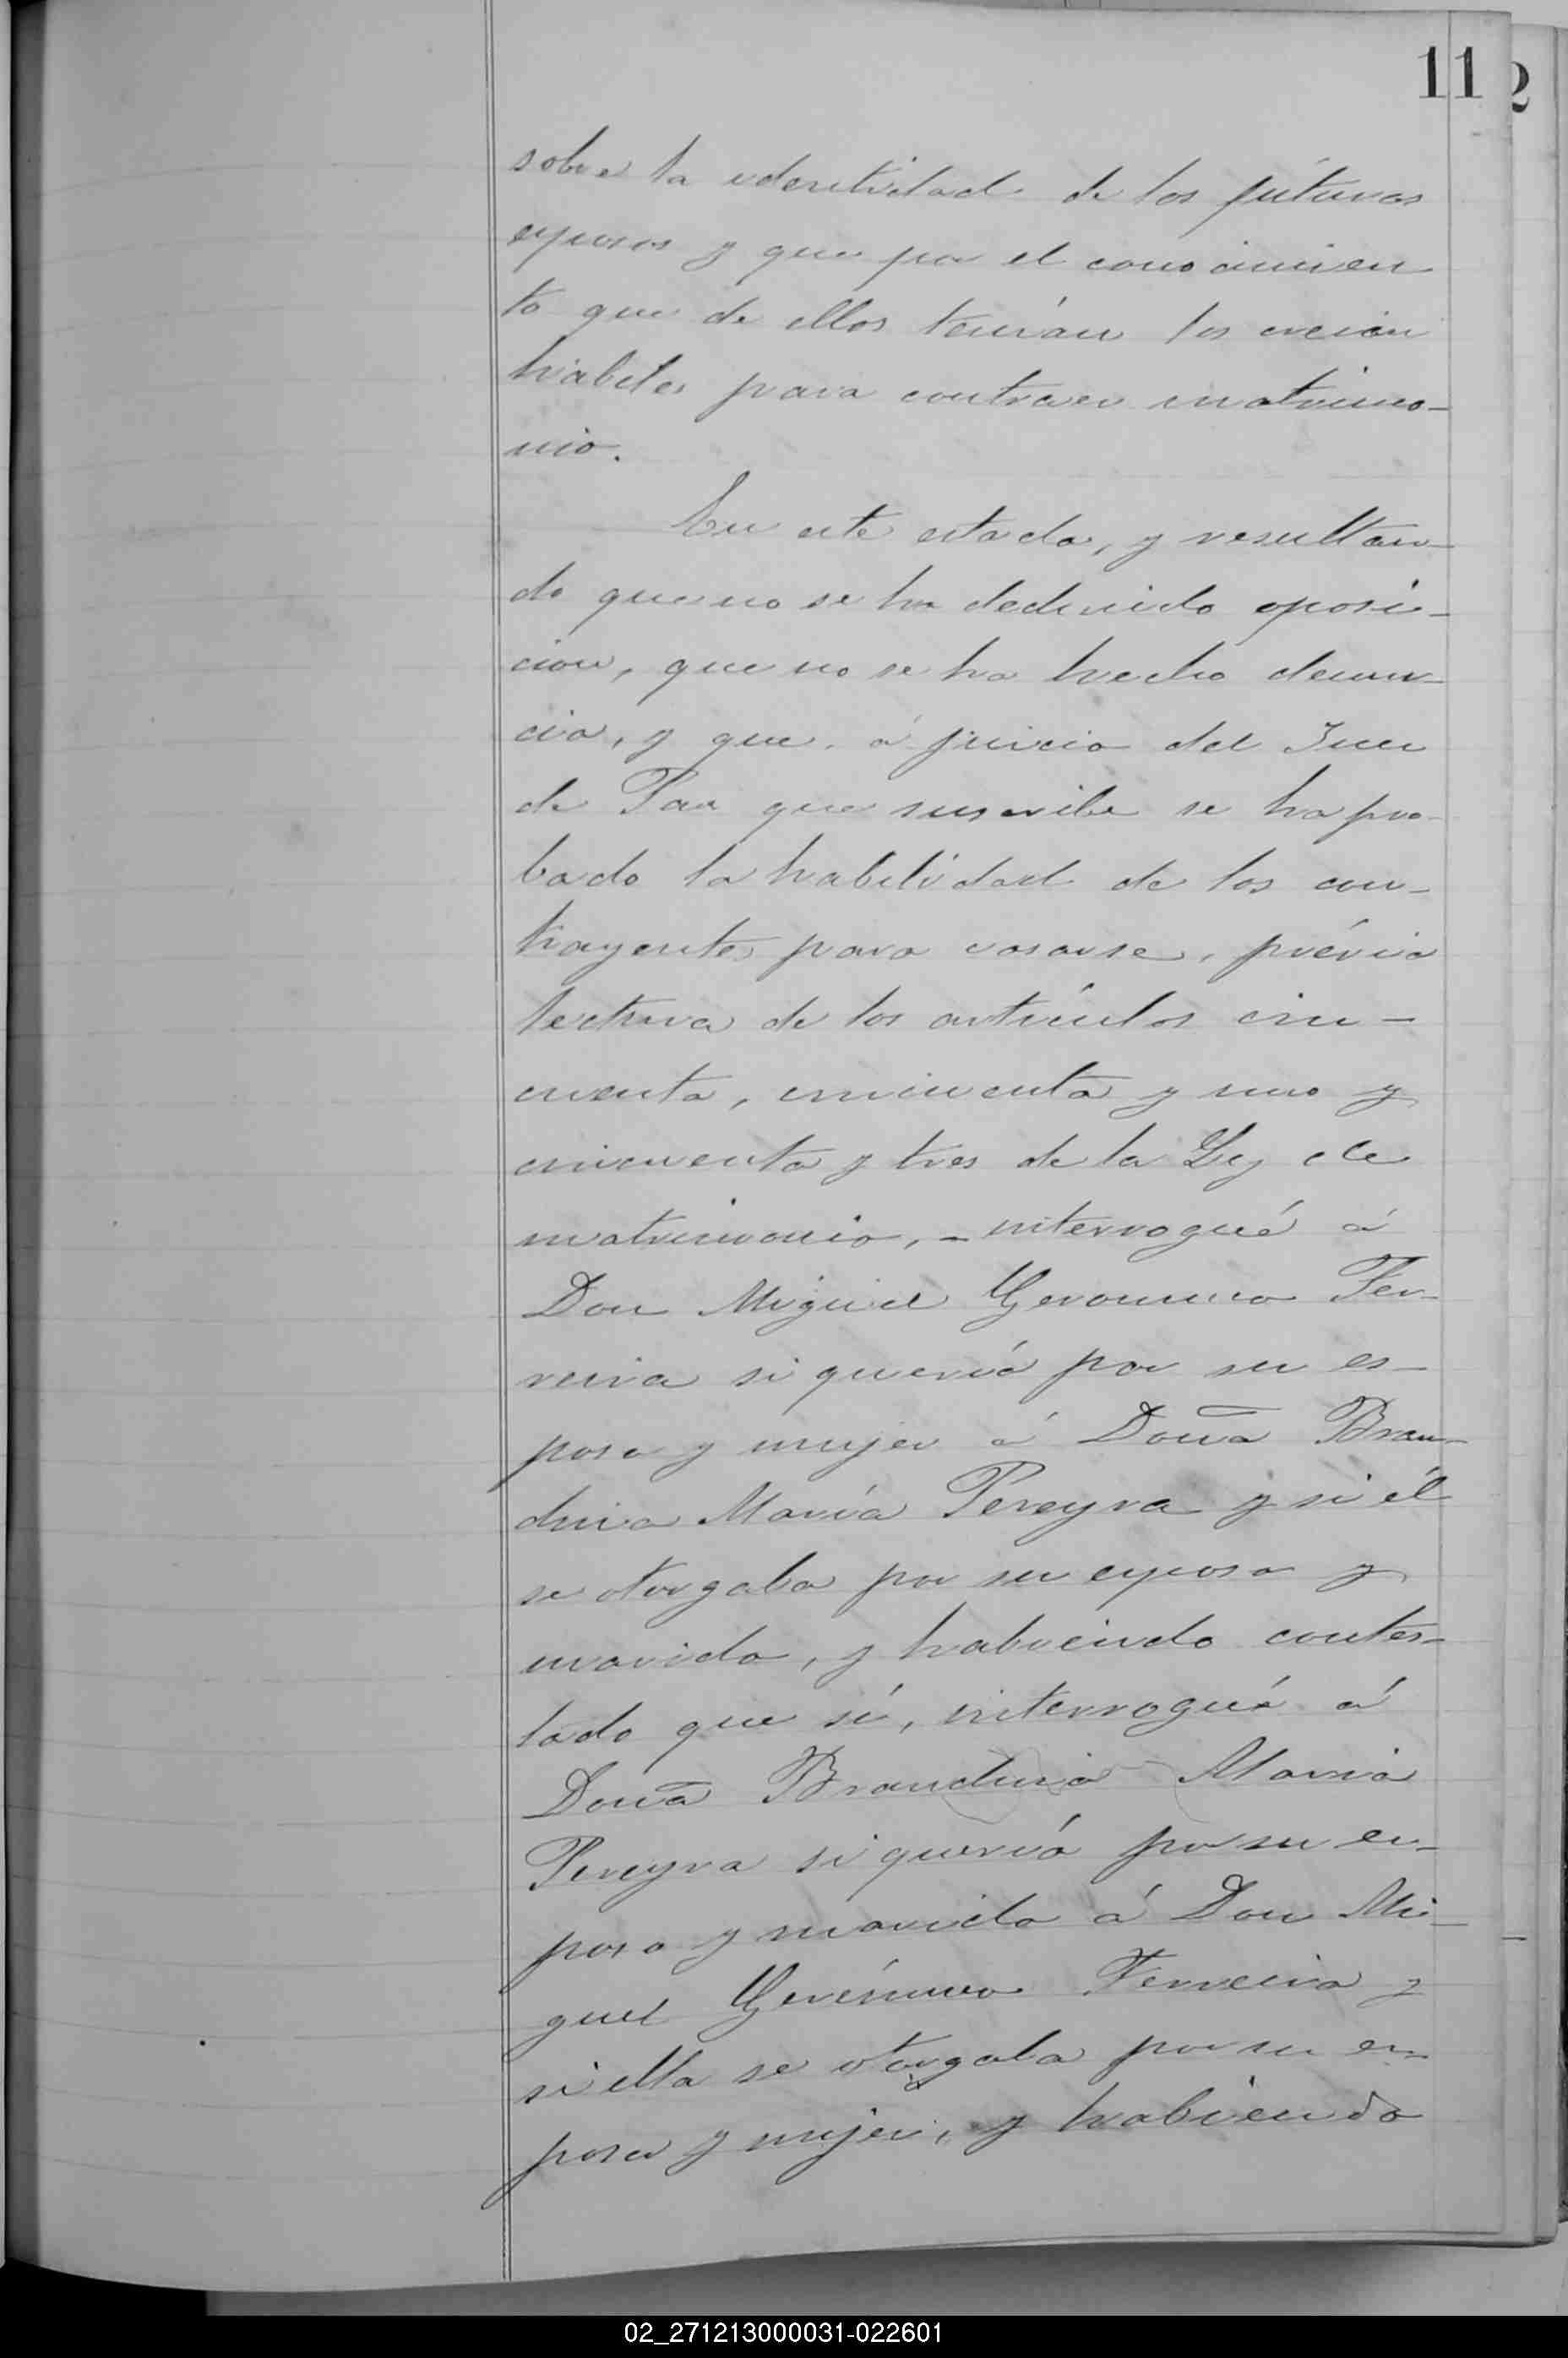 11
2
sobre la identidad de los futuros
esposos y que por el conocimien
to que de ellos tenían los creían
hábiles para contraer matrimo-
nio.
En este estado, y resultan-
do que no se ha deducido oposi-
cion, que no se ha hecho denun-
cia, y que á juicio del Juez
de Paz que suscribe se ha pro-
bado la habilidad de los con-
trayentes para casarse, prévia
lectura de los artículos cin-
cuenta, cincuenta y uno y
cincuenta y tres de la Ley de
matrimonio,- interrogué á
Don Miguel Geronimo Fer-
reira si quería por su es-
posa y mujer á Doña Bran-
dina María Pereyra y si él
se otorgaba por su esposo y
marido, y habiendo contes-
tado que sí, interrogué á
Doña Brandina Maria
Pereyra si quería por su es-
poso y marido á Don Mi-
guel Gerónimo Ferreira y
si ella se otorgaba por su es-
posa y mujer, y habiendo
02_271213000031-022601